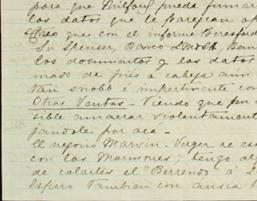 para que Milford pueda firmar
los datos que le parezcan
Creo que con el informe Beresford
Sr Spenser, Banco
los documentos y los datos
mado de pies a cabeza aun
tan snobb é impertinente con
Otras Ventas. Viendo que
sible amarrar violentamente
jándole por acá.
El negocio Marvin
con los Mormones; tengo
de calarles el "Berrendo á
Espero tambien con ansia